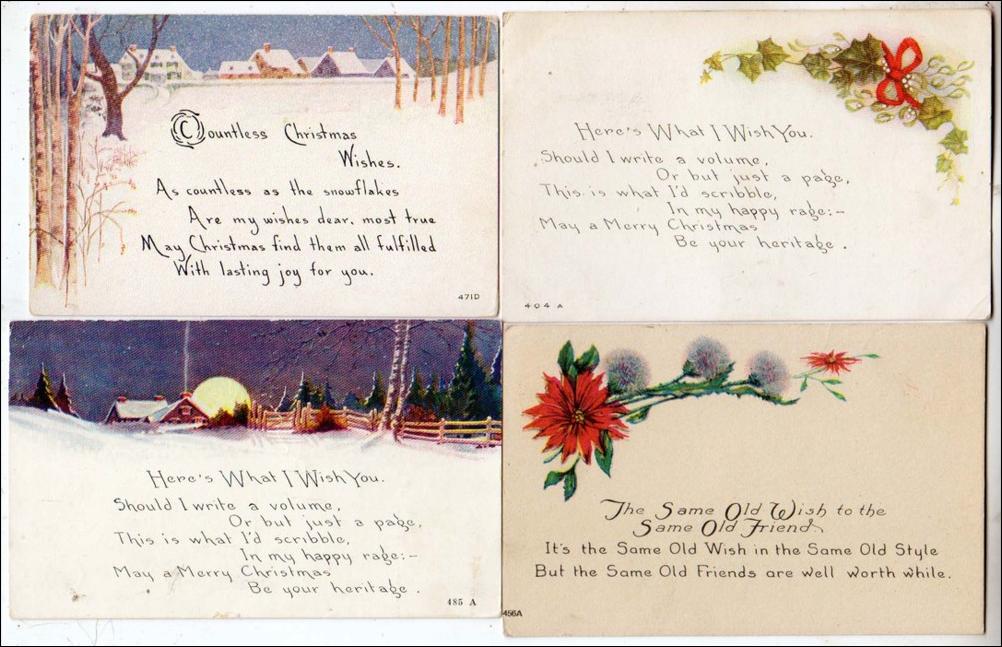 Countless Christmas
Wishes.
As countless as the snowflakes
Are my wishes dear, most true
May Christmas find them all fulfilled
With lasting joy for you.
471D
Here's What I Wish You.
Should I write a volume,
Or but just a page,
This is what I'd scribble,
In my happy rage:-
May a Merry Christmas
Be your heritage.
404 A
Here's What I Wish You.
Should I write a volume,
Or but just a page,
This is what I'd scribble,
In my happy rage:-
May a Merry Christmas
Be your heritage.
485 A
The Same Old Wish to the
Same Old Friend
It's the Same Old Wish in the Same Old Style
But the Same Old Friends are well worth while.
456A